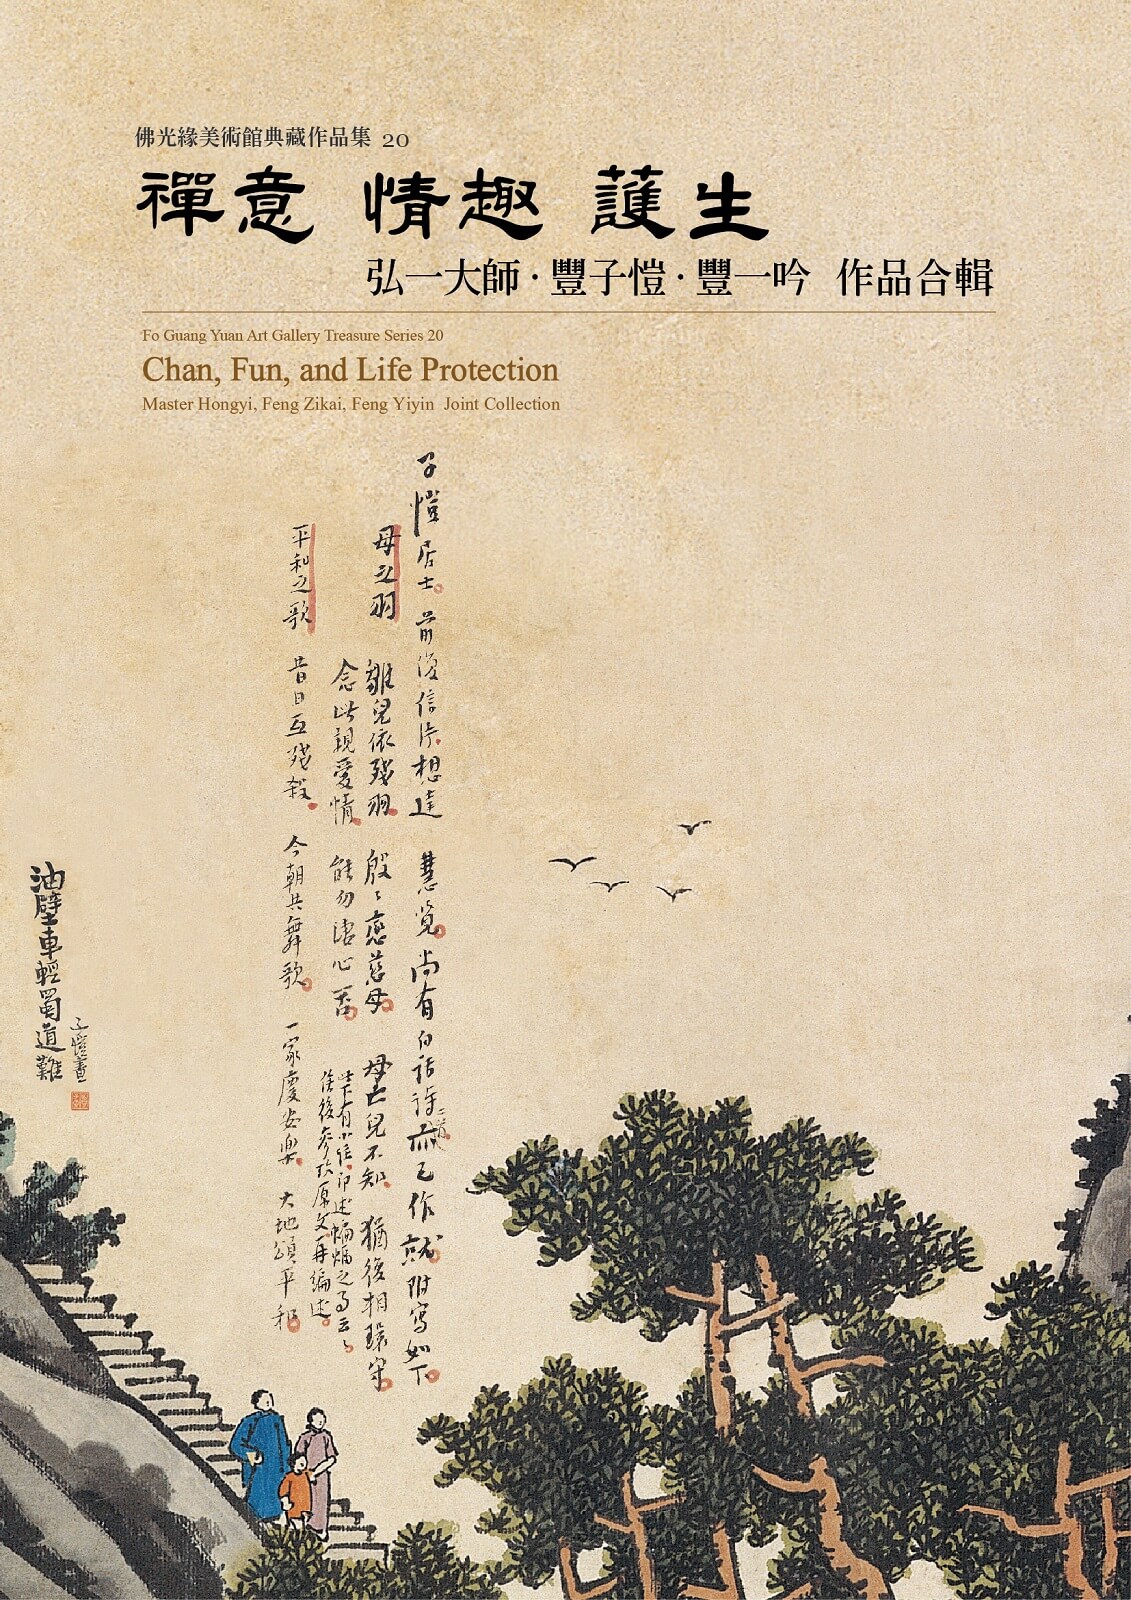 佛光緣美術館典藏作品集 20
禪意 情趣 護生
弘一大師·豐子愷·豐一吟 作品合輯
Fo Guang Yuan Art Gallery Treasure Series 20
Chan, Fun, and Life Protection
Master Hongyi, Feng Zikai, Feng Yiyin Joint Collection
子愷居士。前復信片想達 慧覽。尚有白話詩二首亦已作就附寫如下。
母之羽 雛兒依殘羽。殷々戀慈母。母亡兒不知。猶復相環守。
念此親愛情。能勿悽心否。
此下有小註。即述蝙蝠之事云々。
俟後參攷原文再編述。
平和之歌 昔日互殘殺。今朝共舞歌。一家慶安樂。大地頌平和。
油壁車輕蜀道難
子愷畫